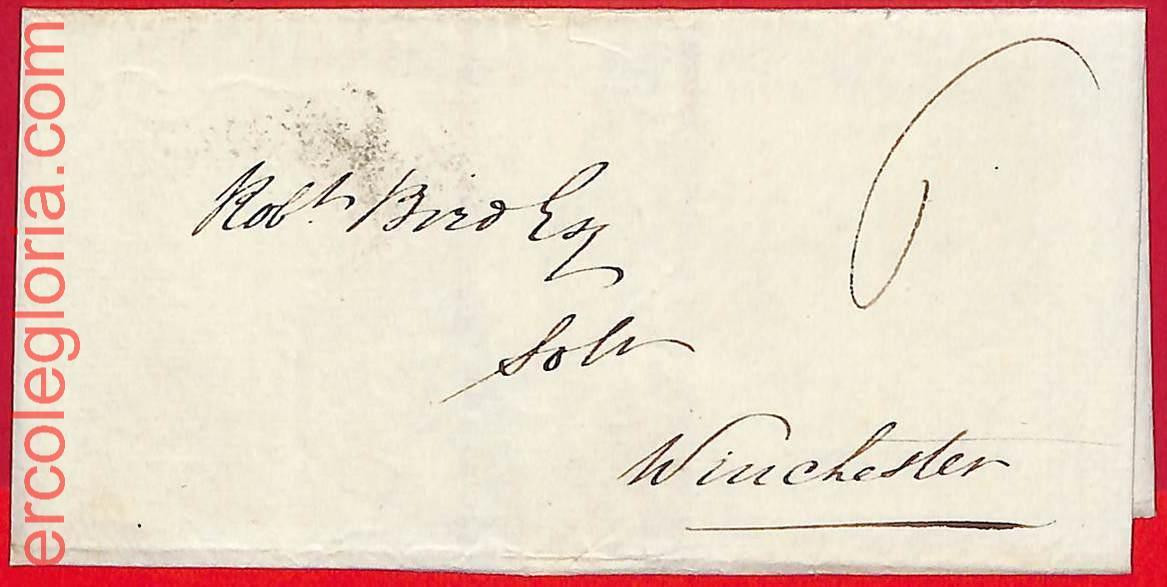 ercolegloria.com
Robt Bird Esq
Solr
Winchester
6